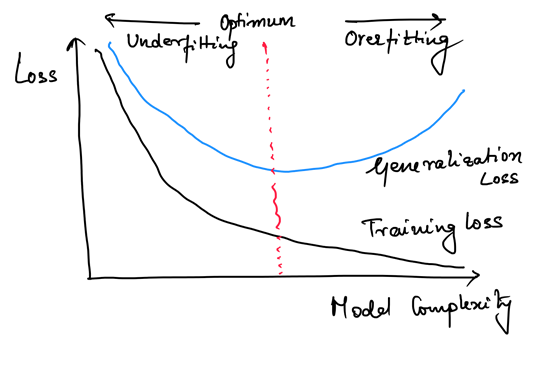 Optimum
Underfitting
Overfitting
Loss
Generalization
Loss
Training Loss
Model Complexity